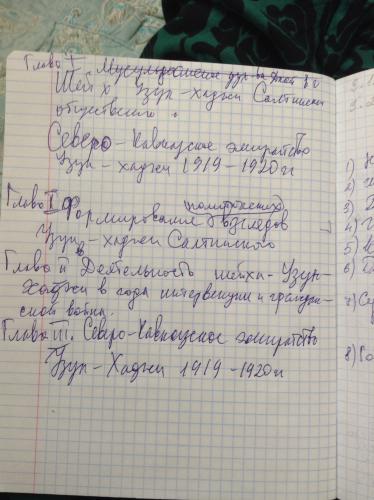 Глава I Мусульманское дух-во
Шейх Узун-хаджи Салтински
общественного.
Северо-Кавказское эмиратство
Узун-хаджи 1919-1920 гг
Глава I Формирование (политических) взглядов
Узун-хаджи Салтинского
Глава II Деятельность шейха-Узун-
Хаджи в годы интервенции и граждан-
ской войны.
Глава III. Северо-Кавказское эмиратство
Узун-Хаджи 1919-1920 гг
1)
2)
3)
4)
5)
6)
7)
8)